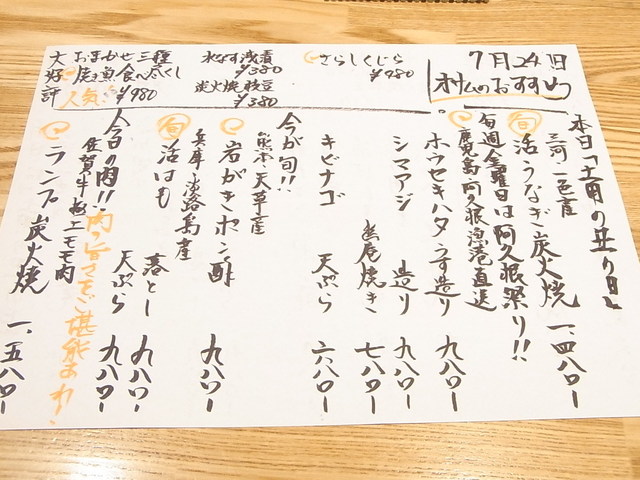 7月24日
オサムのおすすめ
さらしくじら
¥980
水なす浅漬
¥380
炭火焼枝豆
¥380
大好評
おまかせ三種
焼き魚食べ尽くし
人気!! ¥980
本日「土用の丑の日」
三河一色産
旬 活うなぎ炭火焼 一、四八〇ー
毎週金曜日は阿久根祭り!!
鹿児島阿久根漁港直送
ホウセキハタ うす造り 九八〇ー
シマアジ 造り 九八〇ー
幽庵焼き 七八〇ー
キビナゴ 天ぷら 六八〇ー
今が旬!!
熊本天草産
岩がきポン酢 九八〇ー
兵庫淡路島産
旬 活はも 落とし 九八〇ー
天ぷら 九八〇ー
今日の肉!! 肉の旨さをご堪能あれー
佐賀牛極上モモ肉
ランプ炭火焼 一、五八〇ー